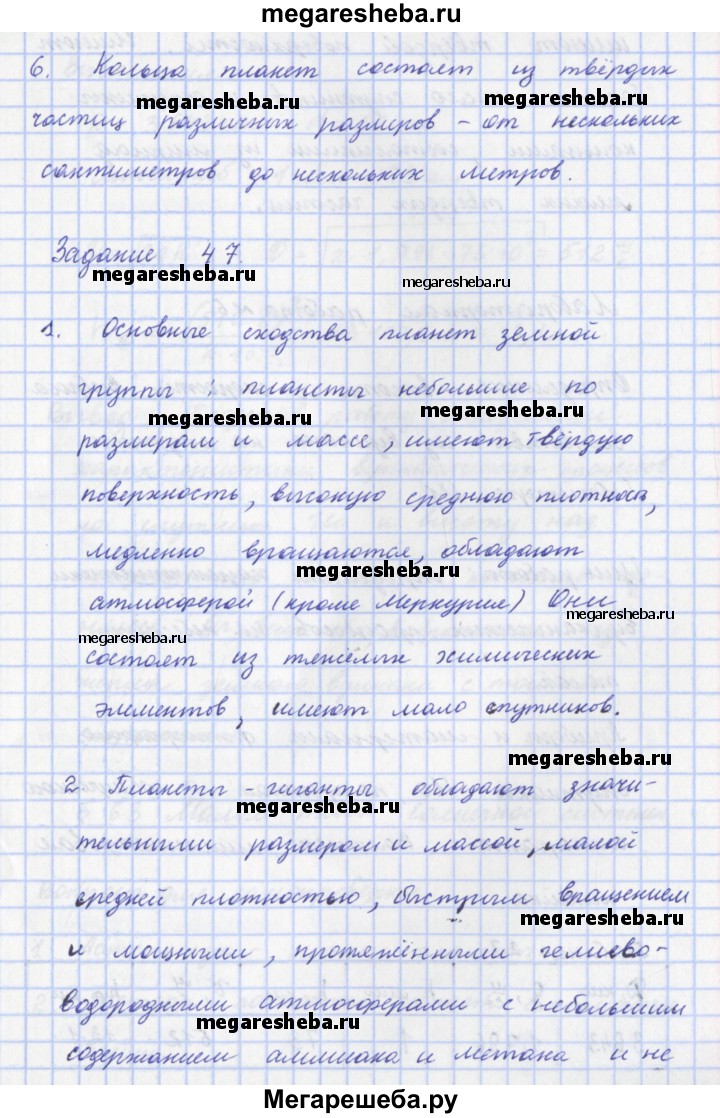 megaresheba.ru
6. Кольца планет состоят из твёрдых
megaresheba.ru megaresheba.ru
частиц различных размеров - от нескольких
сантиметров до нескольких метров.
Задание 47.
megaresheba.ru megaresheba.ru
1. Основные сходства планет земной
группы: планеты небольшие по
megaresheba.ru megaresheba.ru
размерам и массе, имеют твёрдую
поверхность, высокую среднюю плотность,
медленно вращаются, обладают
megaresheba.ru
атмосферой (кроме Меркурия) Они
megaresheba.ru megaresheba.ru
состоят из тяжёлых химических
элементов, имеют мало спутников.
megaresheba.ru
2. Планеты - гиганты обладают значи-
megaresheba.ru
тельными размером и массой, малой
средней плотностью, быстрым вращением
megaresheba.ru
и мощными, протяжёнными гелиево-
водородными атмосферами с небольшим
megaresheba.ru
содержанием аммиака и метана и не
Мегарешеба.ру